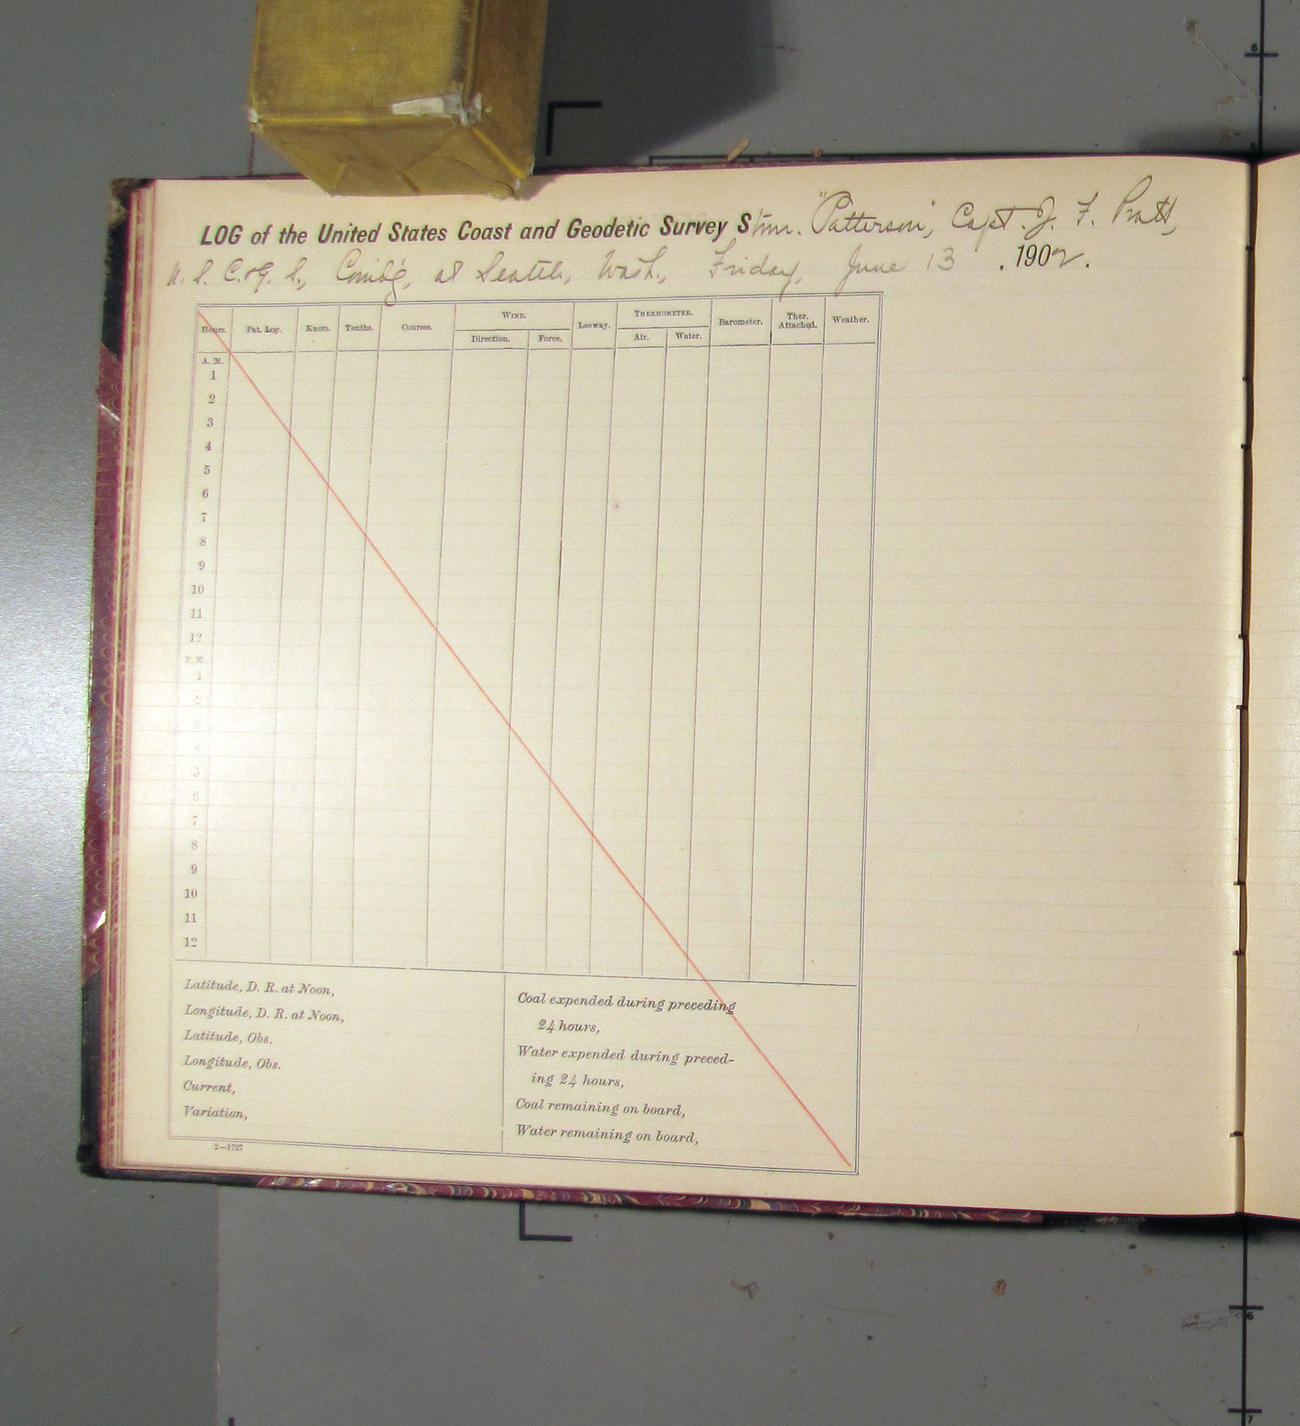 LOG of the United States Coast and Geodetic Survey Stmr. "Patterson", Capt. J. F. Pratt,
U. S. C. & G. S., Comd'g, at Seattle, Wash., Friday, June 13, 1902.
Hours. Pat. Log. Knots. Tenths. Courses. WIND. Leeway. THERMOMETER. Barometer. Ther. Attached. Weather.
Direction. Force. Air. Water.
A. M.
1
2
3
4
5
6
7
8
9
10
11
12
P. M.
1
2
3
4
5
6
7
8
9
10
11
12
Latitude, D. R. at Noon,
Longitude, D. R. at Noon,
Latitude, Obs.
Longitude, Obs.
Current,
Variation,
Coal expended during preceding
24 hours,
Water expended during preced-
ing 24 hours,
Coal remaining on board,
Water remaining on board,
2—1727
6
6
7